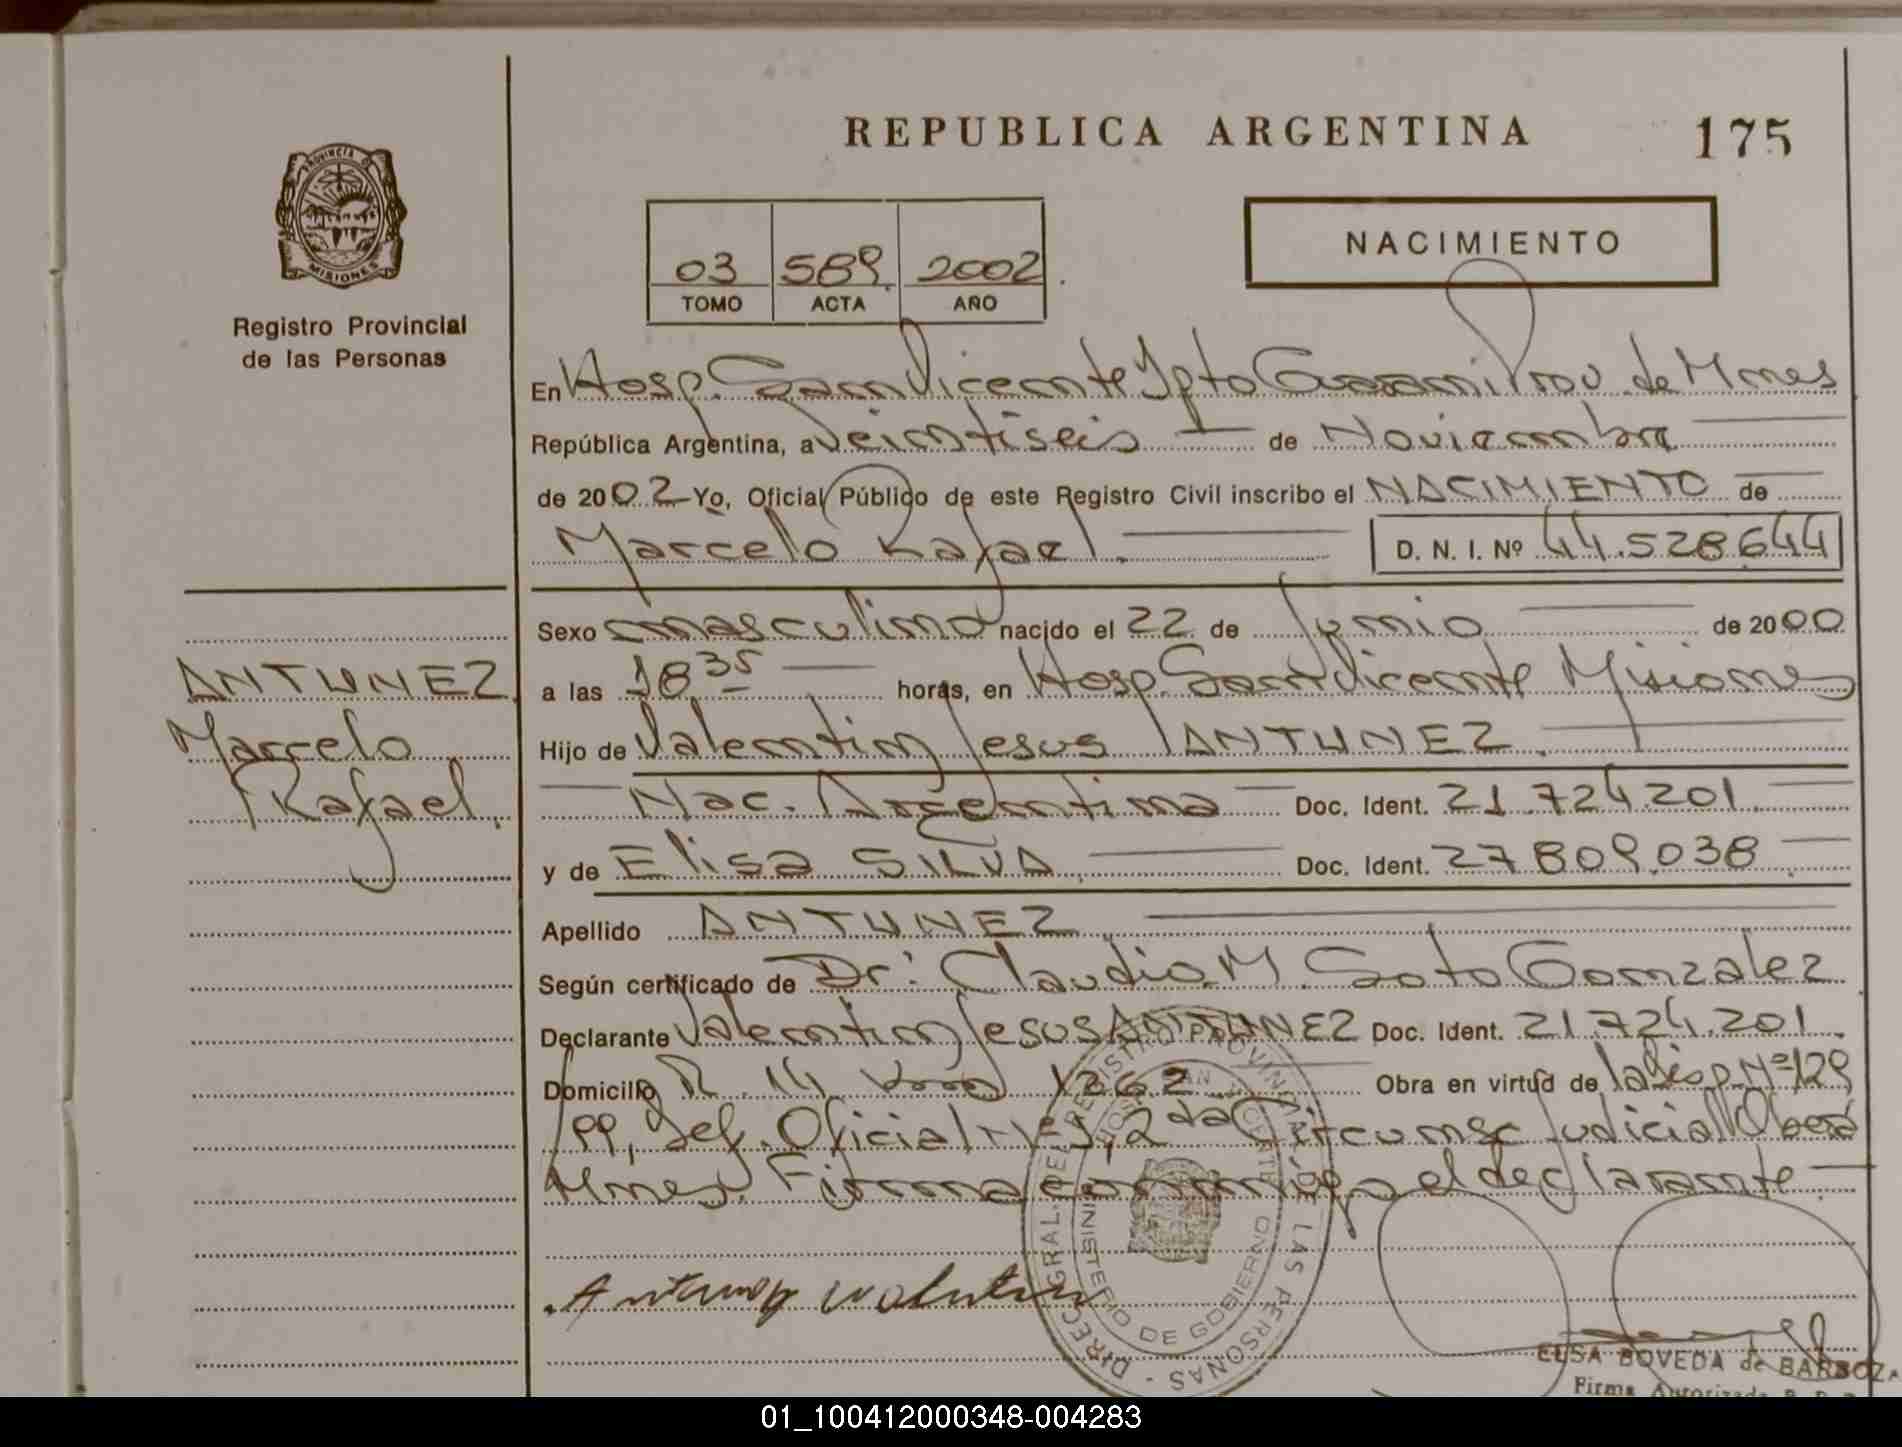 REPUBLICA ARGENTINA 175
PROVINCIA D
MISIONES
Registro Provincial
de las Personas
03 589 2002
TOMO ACTA AÑO
NACIMIENTO
En Hosp. San Vicente Dpto Guaraní Prov. de Mnes
República Argentina, a veintiseis de Noviembre
de 2002 Yo, Oficial Público de este Registro Civil inscribo el NACIMIENTO de
Marcelo Rafael. D. N. I. Nº 44.528.644
Sexo masculino nacido el 22 de Junio de 2000
ANTUNEZ
Marcelo
Rafael.
a las 18 35 horas, en Hosp. San Vicente Misiones
Hijo de Valentin Jesus ANTUNEZ.
Nac. Argentina Doc. Ident. 21.724.201
y de Elisa SILVA. Doc. Ident. 27.809.038
Apellido ANTUNEZ
Según certificado de Dr: Claudio M. Soto Gonzalez
Declarante Valentin Jesus ANTUNEZ Doc. Ident. 21.724.201.
Domicilio R. 14 1262 Obra en virtud de la Disp. Nº 129
99, Def. Oficial Nº 1, 2da Circunsc Judicial Oberá
Mnes. Firma conmigo el declarante.
DIREC. GRAL. DEL REGISTRO PROVINCIAL DE LAS PERSONAS -
MINISTERIO DE GOBIERNO
SAN VICENTE
Antunez Valentin
ELSA BOVEDA de BARBOZA
Firma Autorizada R. P. P.
01_100412000348-004283